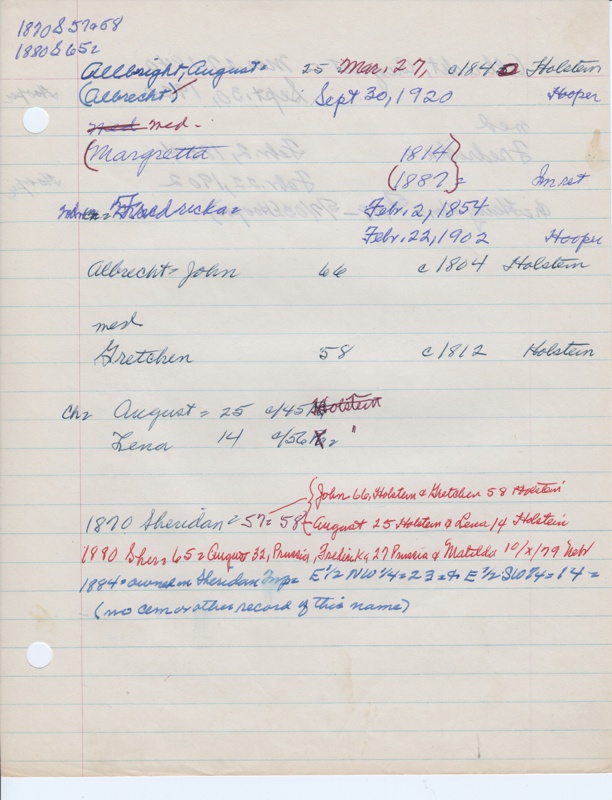 1870 S 57=58
1880 S 65=
Allbright, August= 25 Mar. 27, c1840 Holstein
(Albrecht) Sept 30, 1920 Hooper
med med.
(Margretta 1814
(1887)= Im ret
Fredricka= Febr. 2, 1854
Febr. 22, 1902 Hooper
Albrecht= John 66 c1804 Holstein
med
Gretchen 58 c1812 Holstein
Ch= August= 25 c/45 Holstein
Lena 14 c/56 = "
John 66, Holstein & Gretchen 58 Holstein
1870 Sheridan= 57=58 August 25 Holstein & Lena 14 Holstein
1880 Sher=65=August 32, Prussia, Fredrika, 27 Prussia & Matilda 10/x/79 Nebr
1884=owned in Sheridan Twp= E½ NW¼=23=& E½ SW¼=14=
(no cem or other record of this name)